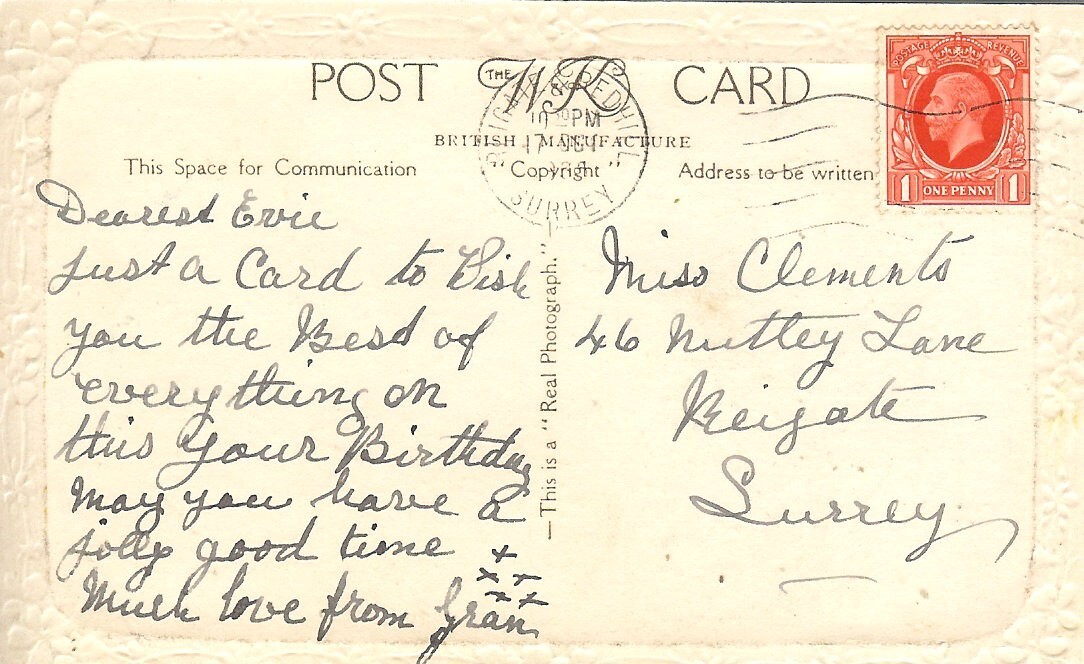 POST THE WK CARD
BRITISH MANUFACTURE
This Space for Communication "Copyright" Address to be written
REIGATE & REDHILL
PM
17 NOV
SURREY
POSTAGE REVENUE
1 ONE PENNY 1
Dearest Evie
Just a Card to Wish
you the Best of
everything on
this your Birthday
May you have a
jolly good time
Much love from Gran
—This is a "Real Photograph."—
Miss Clements
46 Nutley Lane
Reigate
Surrey